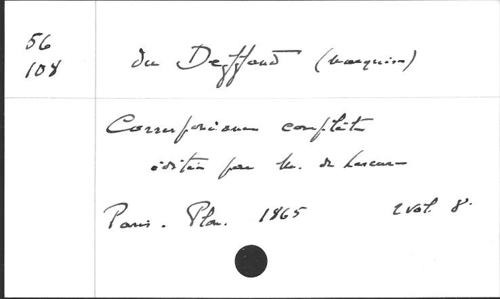 56
108
du Deffand (marquise)
Correspondance complète
éditée par M. de Lescure
Paris. Plon. 1865 2 vol. 8°